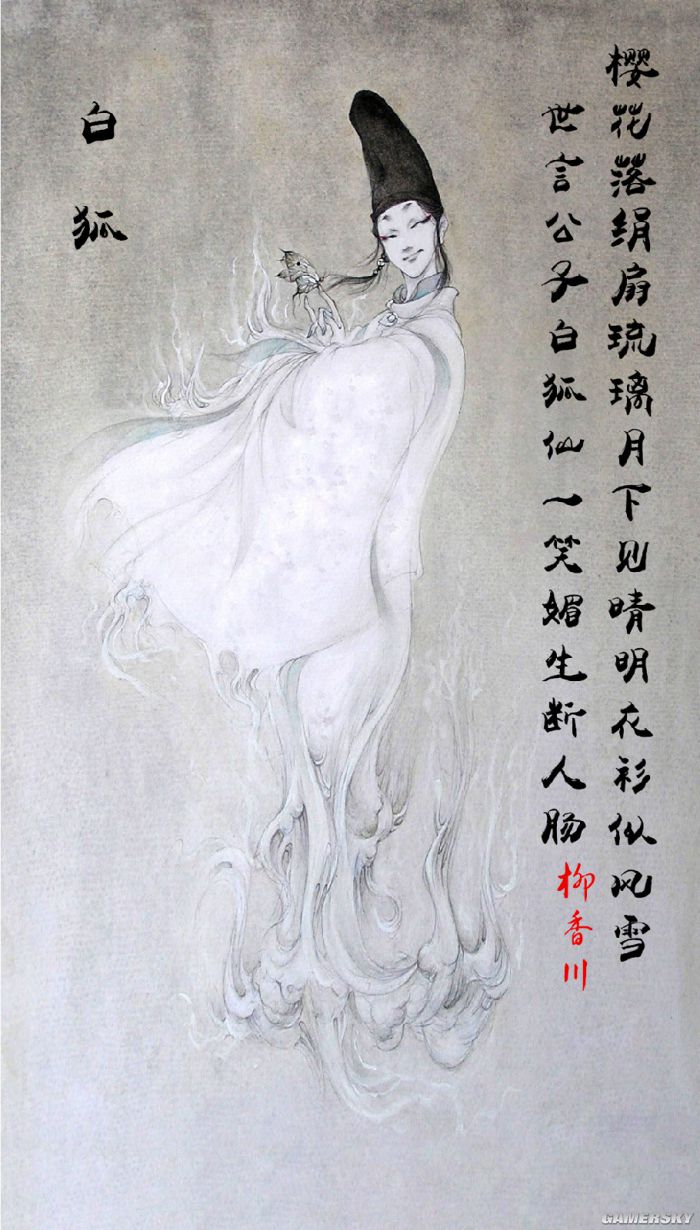 樱花落绢扇琉璃月下见晴明衣衫似风雪
世言公子白狐仙一笑媚生断人肠
柳香川
白狐
GAMERSKY